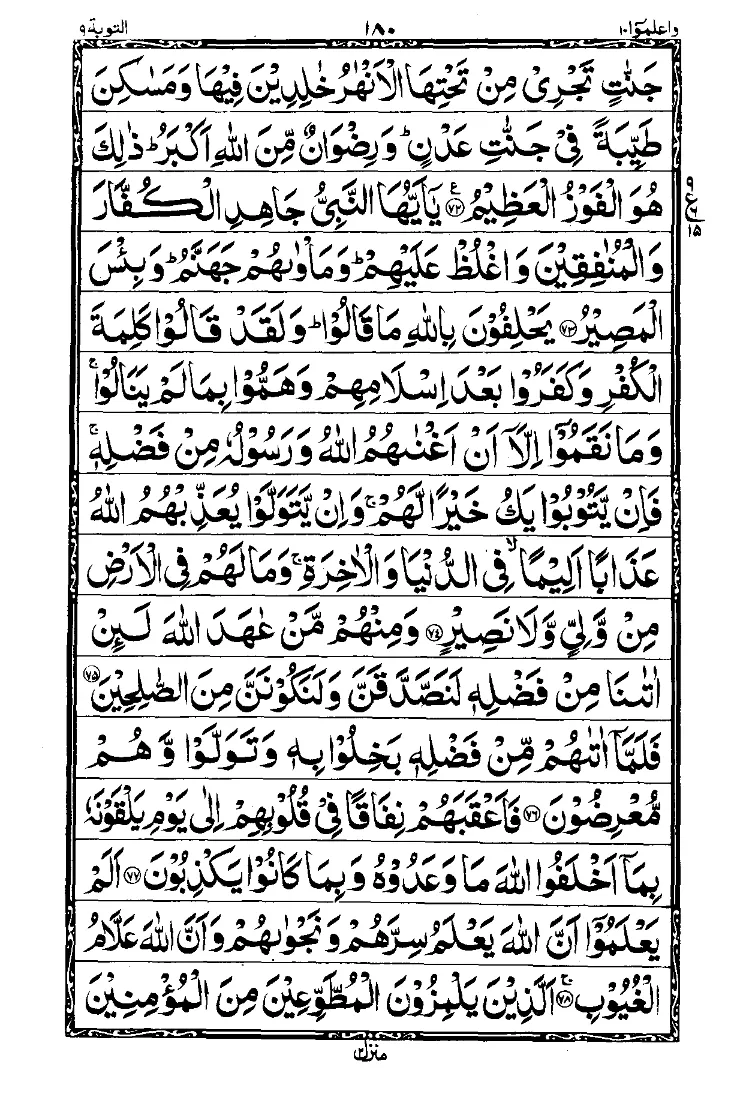 واعلموۤا ١٠ ١٨٠ التوبة ٩
جَنّٰتٍ تَجْرِیْ مِنْ تَحْتِهَا الْاَنْهٰرُ خٰلِدِیْنَ فِیْهَا وَ مَسٰكِنَ
طَیِّبَةً فِیْ جَنّٰتِ عَدْنٍ ؕ وَ رِضْوَانٌ مِّنَ اللّٰهِ اَكْبَرُ ؕ ذٰلِكَ
هُوَ الْفَوْزُ الْعَظِیْمُ ﴿۷۲﴾ یٰۤاَیُّهَا النَّبِیُّ جَاهِدِ الْكُفَّارَ
وَ الْمُنٰفِقِیْنَ وَ اغْلُظْ عَلَیْهِمْ ؕ وَ مَاْوٰىهُمْ جَهَنَّمُ ؕ وَ بِئْسَ
الْمَصِیْرُ ﴿۷۳﴾ یَحْلِفُوْنَ بِاللّٰهِ مَا قَالُوْا ؕ وَ لَقَدْ قَالُوْا كَلِمَةَ
الْكُفْرِ وَ كَفَرُوْا بَعْدَ اِسْلَامِهِمْ وَ هَمُّوْا بِمَا لَمْ یَنَالُوْا ۚ
وَ مَا نَقَمُوْۤا اِلَّاۤ اَنْ اَغْنٰىهُمُ اللّٰهُ وَ رَسُوْلُهٗ مِنْ فَضْلِهٖ ۚ
فَاِنْ یَّتُوْبُوْا یَكُ خَیْرًا لَّهُمْ ۚ وَ اِنْ یَّتَوَلَّوْا یُعَذِّبْهُمُ اللّٰهُ
عَذَابًا اَلِیْمًا ۙ فِی الدُّنْیَا وَ الْاٰخِرَةِ ۚ وَ مَا لَهُمْ فِی الْاَرْضِ
مِنْ وَّلِیٍّ وَّ لَا نَصِیْرٍ ﴿۷۴﴾ وَ مِنْهُمْ مَّنْ عٰهَدَ اللّٰهَ لَىِٕنْ
اٰتٰىنَا مِنْ فَضْلِهٖ لَنَصَّدَّقَنَّ وَ لَنَكُوْنَنَّ مِنَ الصّٰلِحِیْنَ ﴿۷۵﴾
فَلَمَّاۤ اٰتٰىهُمْ مِّنْ فَضْلِهٖ بَخِلُوْا بِهٖ وَ تَوَلَّوْا وَّ هُمْ
مُّعْرِضُوْنَ ﴿۷۶﴾ فَاَعْقَبَهُمْ نِفَاقًا فِیْ قُلُوْبِهِمْ اِلٰی یَوْمِ یَلْقَوْنَهٗ
بِمَاۤ اَخْلَفُوا اللّٰهَ مَا وَعَدُوْهُ وَ بِمَا كَانُوْا یَكْذِبُوْنَ ﴿۷۷﴾ اَلَمْ
یَعْلَمُوْۤا اَنَّ اللّٰهَ یَعْلَمُ سِرَّهُمْ وَ نَجْوٰىهُمْ وَ اَنَّ اللّٰهَ عَلَّامُ
الْغُیُوْبِ ﴿۷۸﴾ۚ اَلَّذِیْنَ یَلْمِزُوْنَ الْمُطَّوِّعِیْنَ مِنَ الْمُؤْمِنِیْنَ
٩
ع
٦
١٥
منزل ٢